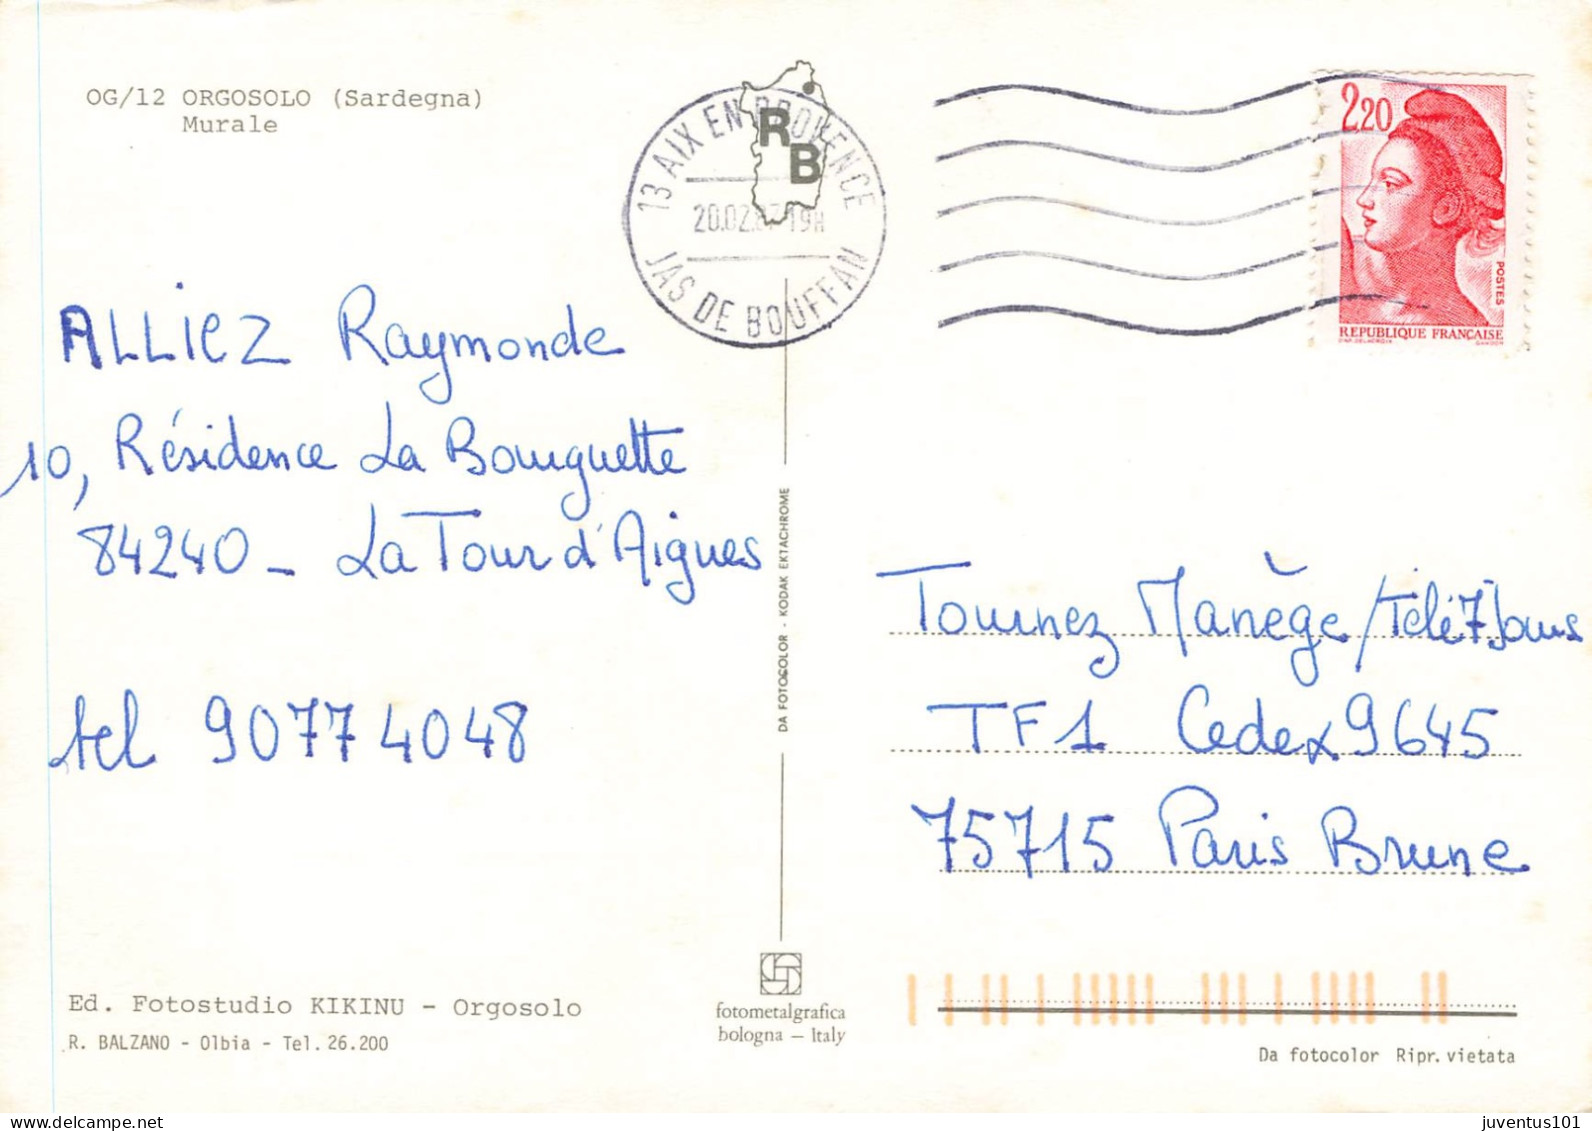 OG/12 ORGOSOLO (Sardegna)
Murale
13 AIX EN PROVENCE
RB
20.02.87 19H
JAS DE BOUFFAN
2,20
POSTES
REPUBLIQUE FRANÇAISE
D'AP. DELACROIX GANDON
ALLIEZ Raymonde
10, Résidence La Bourguette
84240 - La Tour d'Aigues
tel 90774048
DA FOTOCOLOR - KODAK EKTACHROME
Tournez Manège/Télé7Jours
TF1 Cedex 9645
75715 Paris Brune
Ed. Fotostudio KIKINU - Orgosolo
R. BALZANO - Olbia - Tel. 26.200
fotometalgrafica
bologna - Italy
Da fotocolor Ripr. vietata
juventus101